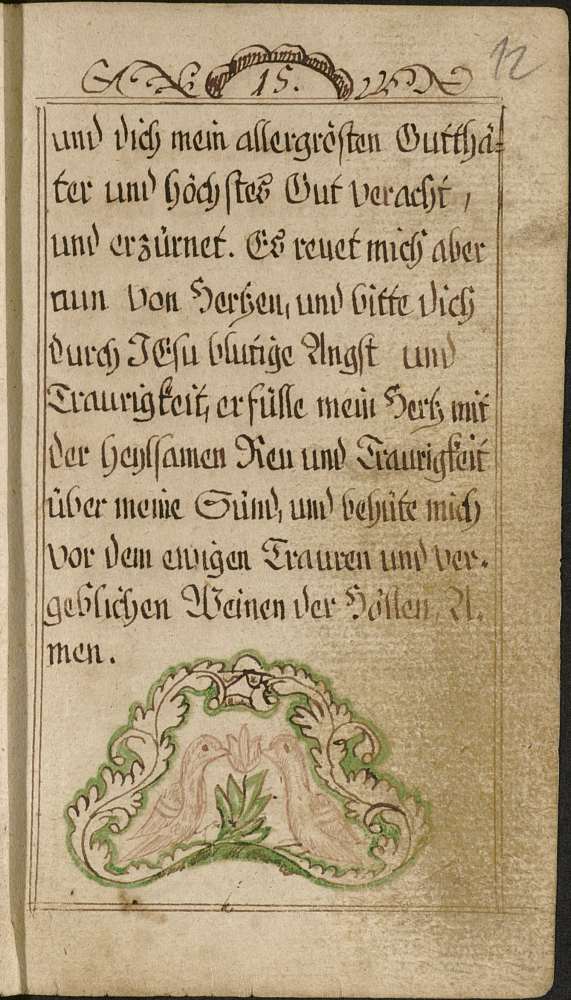 12
15.
und dich mein allergrösten Gutthä-
ter und höchstes Gut veracht,
und erzürnet. Es reuet mich aber
nun von Hertzen, und bitte dich
durch JEsu blutige Angst und
Traurigkeit, erfülle mein Hertz mit
der heylsamen Reu und Traurigkeit
über meine Sünd, und behüte mich
vor dem ewigen Trauren und ver-
geblichen Weinen der Höllen, A-
men.